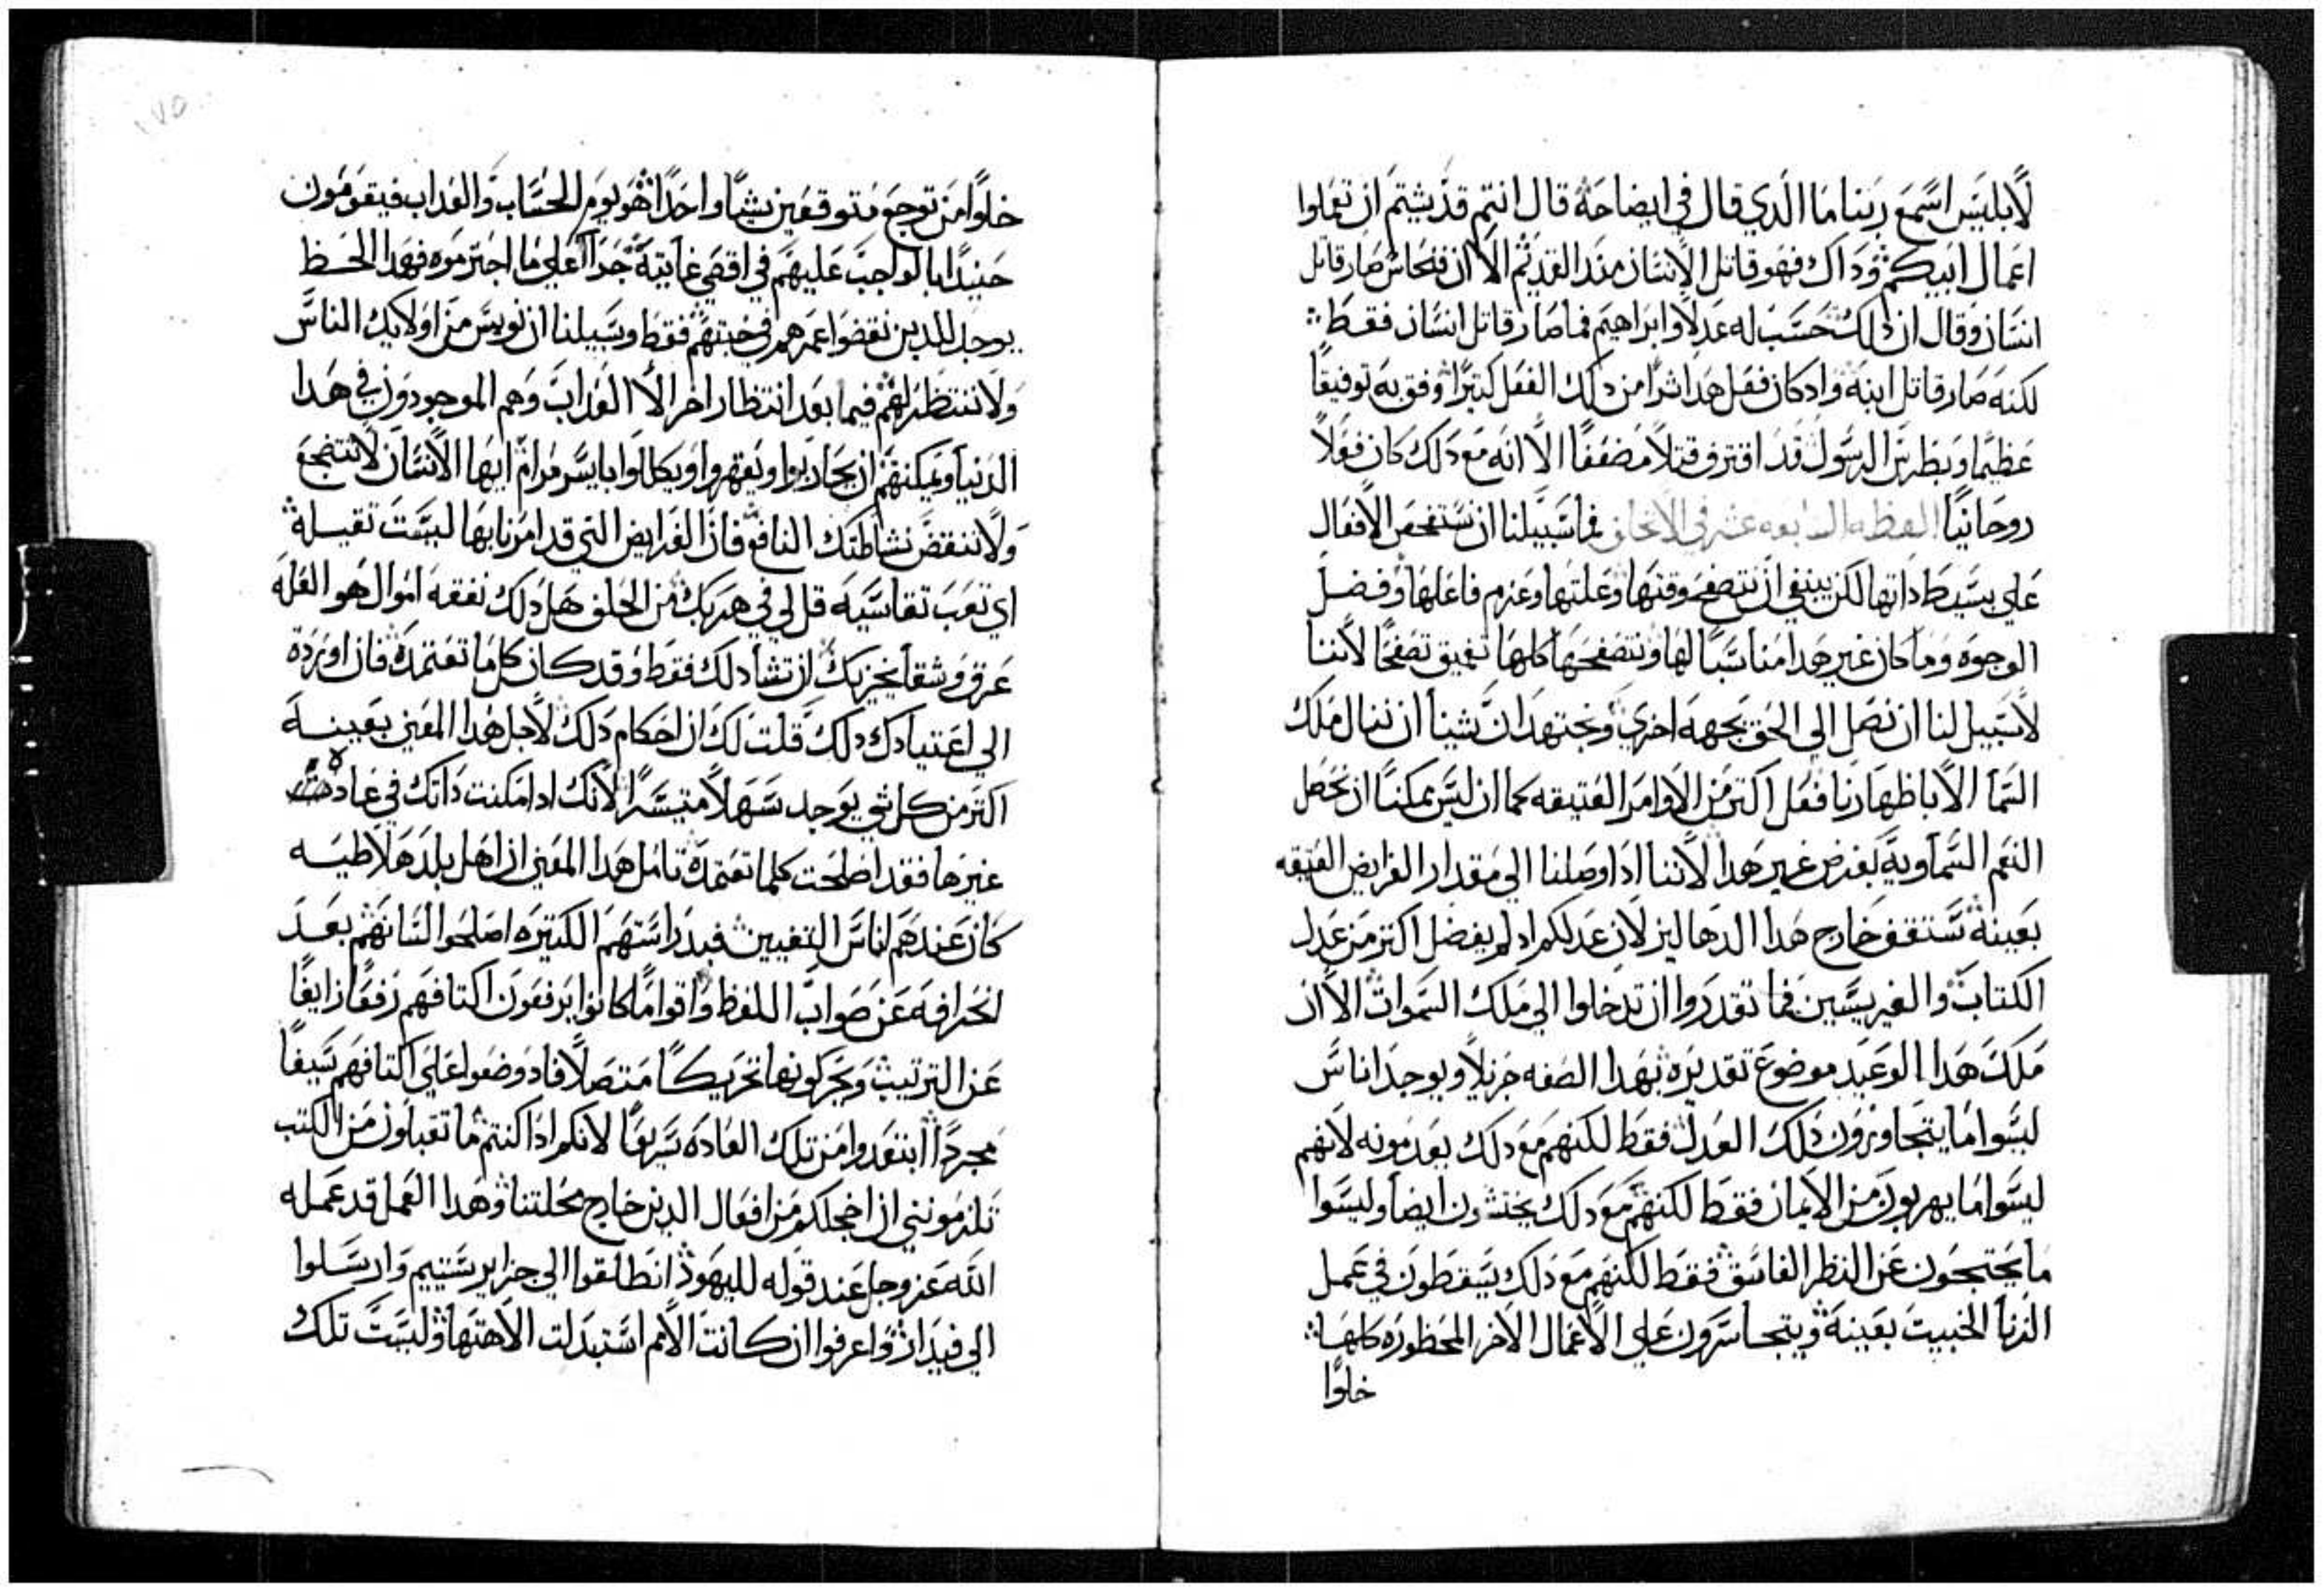 لابليس اسمع ربنا ما الذي قال في ايضاحة قال انتم قد شيتم ان تعملوا
اعمال ابيكم وداك فهو قاتل الانسان مند القديم الا ان فنحاس صار قاتل
انسان وقال ان دلك حسب له عدلا وابراهيم فما صار قاتل انسان فقط
لكنه صار قاتل ابنه واد كان فعل هدا شرا من دلك الفعل كتيرا وفق به توفيقا
عظيما وبطرس الرسول قد اقترف قتلا مضعفا الا انه مع دلك كان فعلا
روحانيا العظه السابعه عشر في الانحاق فما سبيلنا ان نستفحص الافعال
علي بسيط داتها لكن ينبغي ان نتصفح وقتها وعلتها وعزم فاعلها وفضل
الوجوه وما كان غير هدا مناسبا لها ونتصفحها كلها بتعميق تصفحا لاننا
لا سبيل لنا ان نصل الي الحق بجهه اخري ونجتهد ان شينا ان ننال ملك
السما الا باظهارنا فعل اكتر من الاوامر العتيقه كما ان ليس يمكننا ان نحصل
النعم السماوية بغرض غير هدا لاننا ادا وصلنا الي مقدار الفرايض العتيقه
بعينة سنقف خارج هدا الدهاليز لان عدلكم اد لم يفضل اكتر من عدل
الكتاب والفريسيين فما تقدروا ان تدخلوا الي ملك السموات الا ان
ملك هدا الوعيد موضوع تقديره بهدا الصفه جزيلا ويوجد اناس
ليسوا ما يتجاوزون دلك العدل فقط لكنهم مع دلك يعدمونه لانهم
ليسوا ما يهربون من الايمان فقط لكنهم مع دلك يحنتون ايضا وليسوا
ما يحتجون عن النظر الفاسق فقط لكنهم مع دلك يسقطون في عمل
الزنا الخبيت بعينة ويتجاسرون علي الاعمال الاخر المحظوره كلها
خلوا
خلوا من توجع متوقعين شيا واحدا هو يوم الحساب والعداب فيقومون
حنيدا بالواجب عليهم في اقصي غايتة جزا علي ما اجترموه فهدا الحظ
يوجد للدين نقضوا عمرهم في خبتهم فقط وسبيلنا ان نويس من اولايك الناس
ولا ننتظر لهم فيما بعد انتظار اخر الا العداب وهم الموجودون في هدا
الدنيا ويمكنهم ان يحاربوا ويقهروا ويكللوا بايسر مرام ايها الانسان لا تنتضجع
ولا تنقض نشاطتك النافع فان الفرايض التي قد امرنا بها ليست تقيله
اي تعب تقاسيه قل لي في هربك من الحلف هل دلك نفقه اموال هو العله
عرق وشقا يجزيك ان تشا دلك فقط وقد كان كل ما تعتمده فان اوردة
الي اعتيادك دلك قلت لك ان احكام دلك لاجل هدا المعني بعينه
اكتر من كل شي يوجد سهلا متيسرا لانك ادا مكنت داتك في عاده
غيرها فقد اصلحت كلما تعتمده تامل هدا المعني ان اهل بلد هلاطيه
كان عندهم اناس التغيين فبدراستهم الكتيره اصلحوا السانهم بعد
انحرافه عن صواب اللفظ واقواما كانوا يرفعون اكتافهم رفعا زايغا
عن الترتيب ويحركونها تحريكا متصلا فاد وضعوا علي اكتافهم سيفا
مجردا ابتعدوا من تلك العاده سريعا لانكم ادا كنتم ما تقبلون من الكتب
تلزمونني ان اخجلكم من افعال الدين خارج محلتنا وهدا العمل قد عمله
الله عز وجل عند قوله لليهود انطلقوا الي جزاير ستييم وارسلوا
الي فيدار واعرفوا ان كانت الامم استبدلت الاهتها وليست تلك